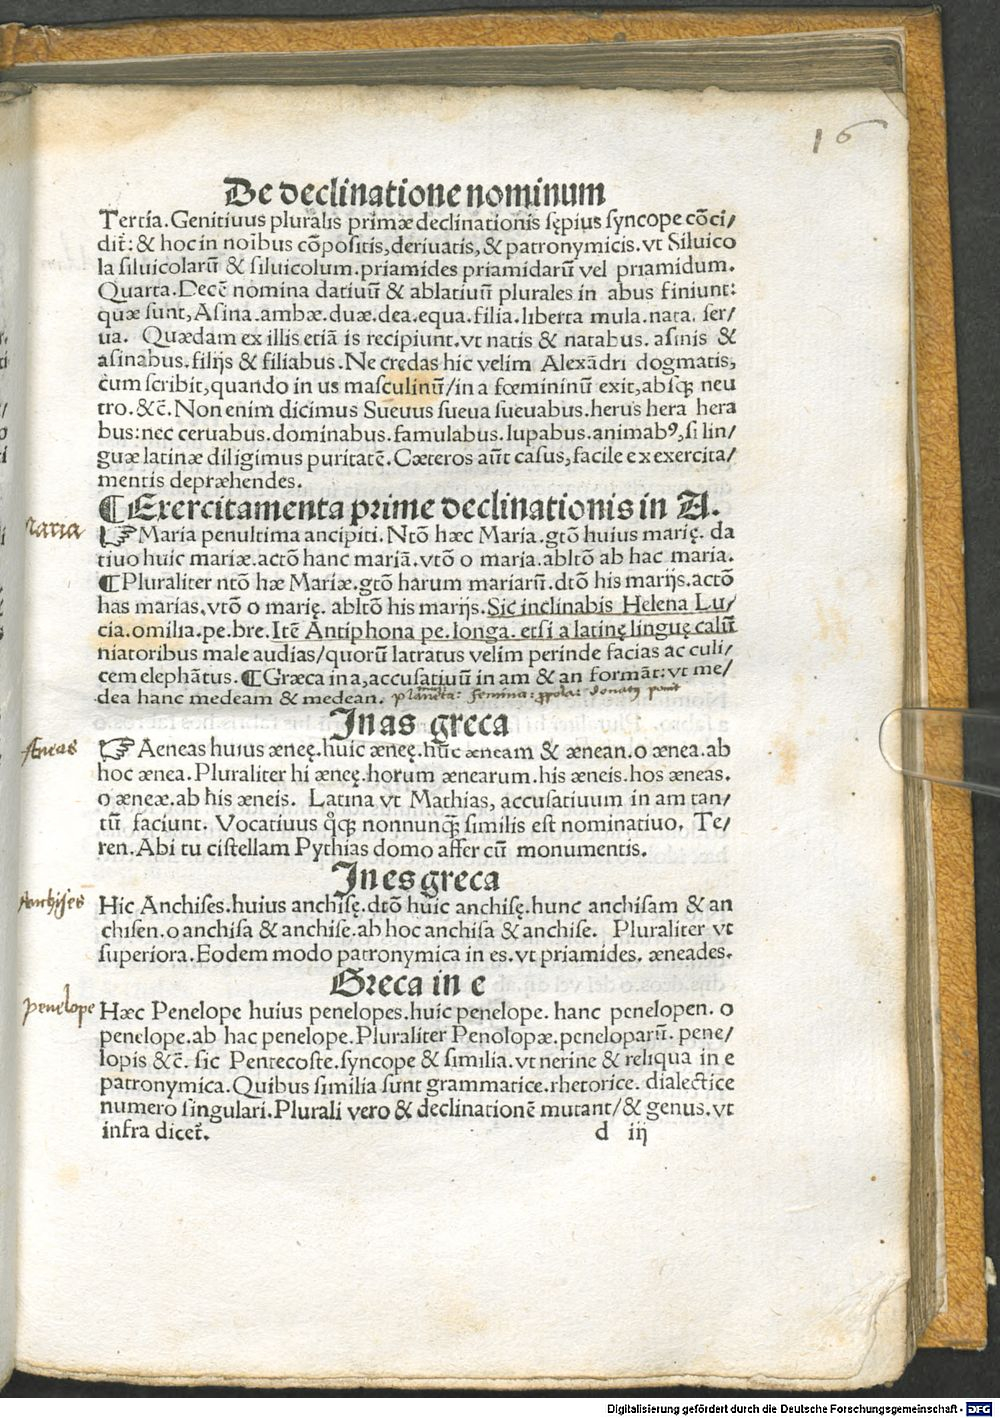 16
De declinatione nominum
Tertia. Genitiuus pluralis primæ declinationis sępius syncope cōci/
dit̄: & hoc in noībus cōpositis, deriuatis, & patronymicis. vt Siluico
la siluicolarū & siluicolum. priamides priamidarū vel priamidum.
Quarta. Decē nomina datiuū & ablatiuū plurales in abus finiunt:
quæ sunt, Asina. ambæ. duæ. dea. equa. filia. liberta mula. nata. ser/
ua. Quædam ex illis etiā is recipiunt. vt natis & natabus. asinis &
asinabus. filijs & filiabus. Ne credas hic velim Alexādri dogmatis,
cum scribit, quando in us masculinū/in a fœmininū exit, absq̨ neu
tro. &c̄. Non enim dicimus Sueuus sueua sueuabus. herus hera hera
bus: nec ceruabus. dominabus. famulabus. lupabus. animabꝰ, si lin/
guæ latinæ diligimus puritatē. Cæteros aūt casus, facile ex exercita/
mentis depræhendes.
¶Exercitamenta prime declinationis in A.
Maria
☞Maria penultima ancipiti. Ntō hæc Maria. gtō huius marię. da
tiuo huic mariæ. actō hanc mariā. vtō o maria. abltō ab hac maria.
¶Pluraliter ntō hæ Mariæ. gtō harum mariarū. dtō his marijs. actō
has marias. vtō o marię. abltō his marijs. Sic inclinabis Helena Lu/
cia. omilia. pe. bre. Itē Antiphona pe. longa. etsi a latinę linguę calū
niatoribus male audias/quorū latratus velim perinde facias ac culi/
cem elephātus. ¶Græca in a, accusatiuū in am & an formāt: vt me/
dea hanc medeam & medean.
In as greca
Æneas
☞Aeneas huius æneę. huic æneę. hūc æneam & ænean. o ænea. ab
hoc ænea. Pluraliter hi æneę. horum ænearum. his æneis. hos æneas.
o æneæ. ab his æneis. Latina vt Mathias, accusatiuum in am tan/
tū faciunt. Vocatiuus qͦq̨ nonnunq̄ similis est nominatiuo. Te/
ren. Abi tu cistellam Pythias domo affer cū monumentis.
In es greca
Anchises
Hic Anchises. huius anchisę. dtō huic anchisę. hunc anchisam & an
chisen. o anchisa & anchise. ab hoc anchisa & anchise. Pluraliter vt
superiora. Eodem modo patronymica in es. vt priamides. æneades.
Greca in e
penelope
Hæc Penelope huius penelopes. huic penelope. hanc penelopen. o
penelope. ab hac penelope. Pluraliter Penolopæ. peneloparū. pene/
lopis &c̄. sic Pentecoste. syncope & similia. vt nerine & reliqua in e
patronymica. Quibus similia sunt grammatice. rhetorice. dialectice
numero singulari. Plurali vero & declinationē mutant/& genus. vt
infra dicet̄.
d iij
Digitalisierung gefördert durch die Deutsche Forschungsgemeinschaft - DFG